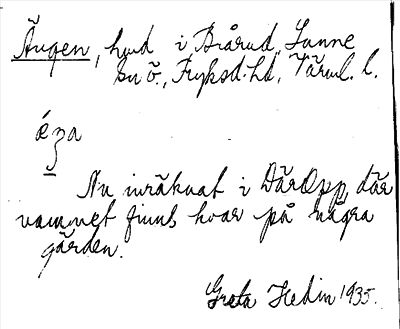 Ängen, hmd i Brårud, Sunne
sn ö., Fryksd. hd, Värml. l.
éza
Nu inräknat i DärOpp, där
namnet finns kvar på några
gärden.
Greta Hedin 1935.